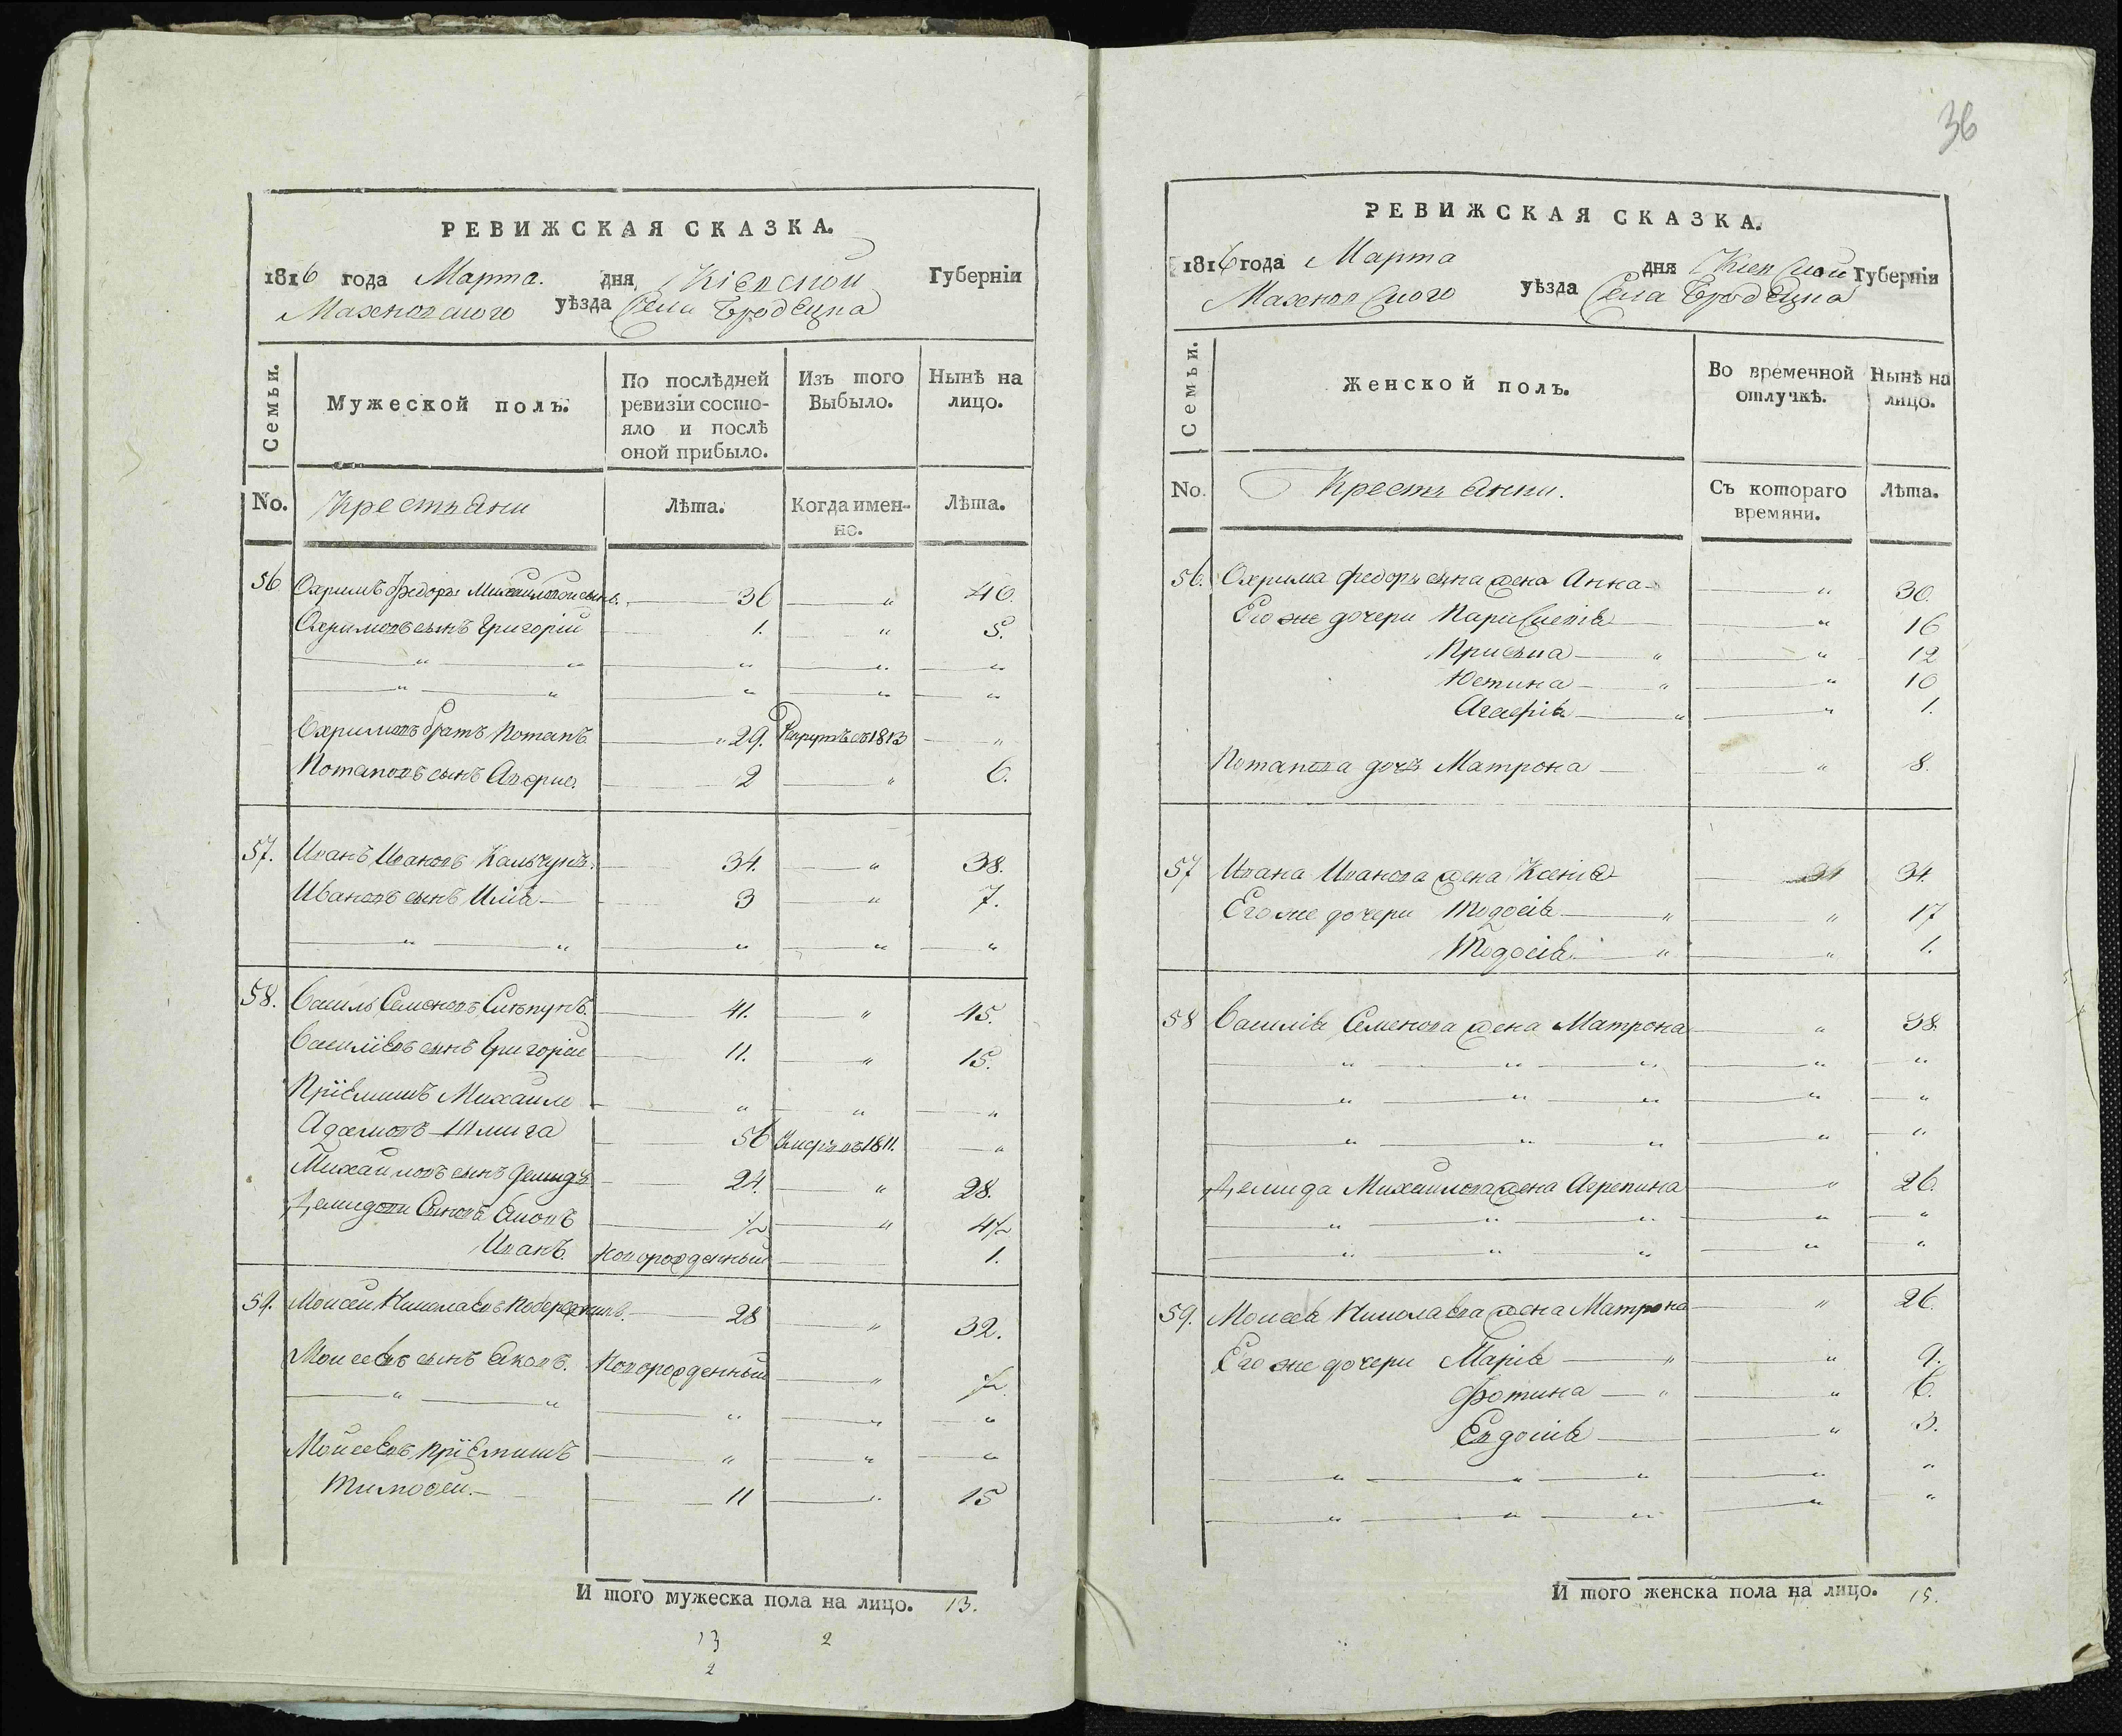 РЕВИЖСКАЯ СКАЗКА.
1816 года Марта. дня Кіевской Губерніи
Махновского уѣзда Села Бродецка
Семьи. Мужеской полъ. По послѣдней ревизіи состояло и послѣ оной прибыло. Изъ того Выбыло. Нынѣ на лицо.
No. Крестьяни Лѣта. Когда именно. Лѣта.
56 Охримъ Федоръ сынъ. 36 „ 40.
Охримовъ сынъ Григорій 1. „ 5.
„ „ „ „ „
„ „ „ „ „
Охримовъ братъ Потапъ. „ 29. въ 1813 „
Потаповъ сынъ 2 „ 6.
57. Иванъ Ивановъ Кальчукъ. 34. „ 38.
Ивановъ сынъ Илія 3 „ 7.
„ „ „ „ „
58. Василь Семеновъ 41. „ 45.
Василіевъ сынъ Григорій 11. „ 15.
Пріемишъ Михаило „ „ „
Адамовъ Шмига 56 въ 1811. „
Михаиловъ сынъ Демидъ 24. „ 28.
Демидови Синовѣ ½ „ 4½
Иванъ. Новорожденный 1.
59. Моисей Николаевъ 28 „ 32.
Моисеевъ сынъ Яковъ. Новорожденный „ ½.
„ „ „ „ „
Моисеевъ Пріемишъ „ „ „
Тимофей. 11 „ 15
И того мужеска пола на лицо. 13.
13 2
2
36
РЕВИЖСКАЯ СКАЗКА.
1816 года Марта дня Кіевской Губерніи
Махновского уѣзда Села Бродецка
Семьи. Женской полъ. Во временной отлучкѣ. Нынѣ на лицо.
No. Крестьянки. Съ котораго времяни. Лѣта.
56. Охрима Федоръ сына жена Анна „ 30.
Его же дочери „ 16
Приська „ „ 12
Юстина „ „ 10
Агафія „ „ 1.
Потапова дочь Матрона „ 8.
57 Ивана Иванова жена Ксенія 34.
Его же дочери Тодосія „ „ 17
Тодосія „ „ 1.
58 Василія Семенова жена Матрона „ 38.
„ „ „ „ „
„ „ „ „ „
„ „ „ „ „
Демида Михаилова жена Агрепина „ 26.
„ „ „ „ „
„ „ „ „ „
59. Моисея Николаева жена Матрона „ 26.
Его же дочери Марія „ „ 9.
Фотина „ „ 6.
Евдокія „ 3.
„ „ „ „ „
„ „ „ „ „
И того женска пола на лицо. 15.